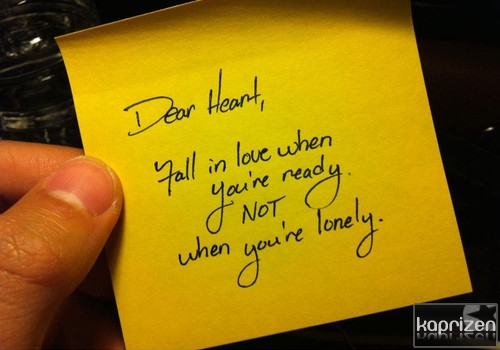 Dear Heart,
Fall in love when
you're ready.
NOT
when you're lonely.
kaprizen